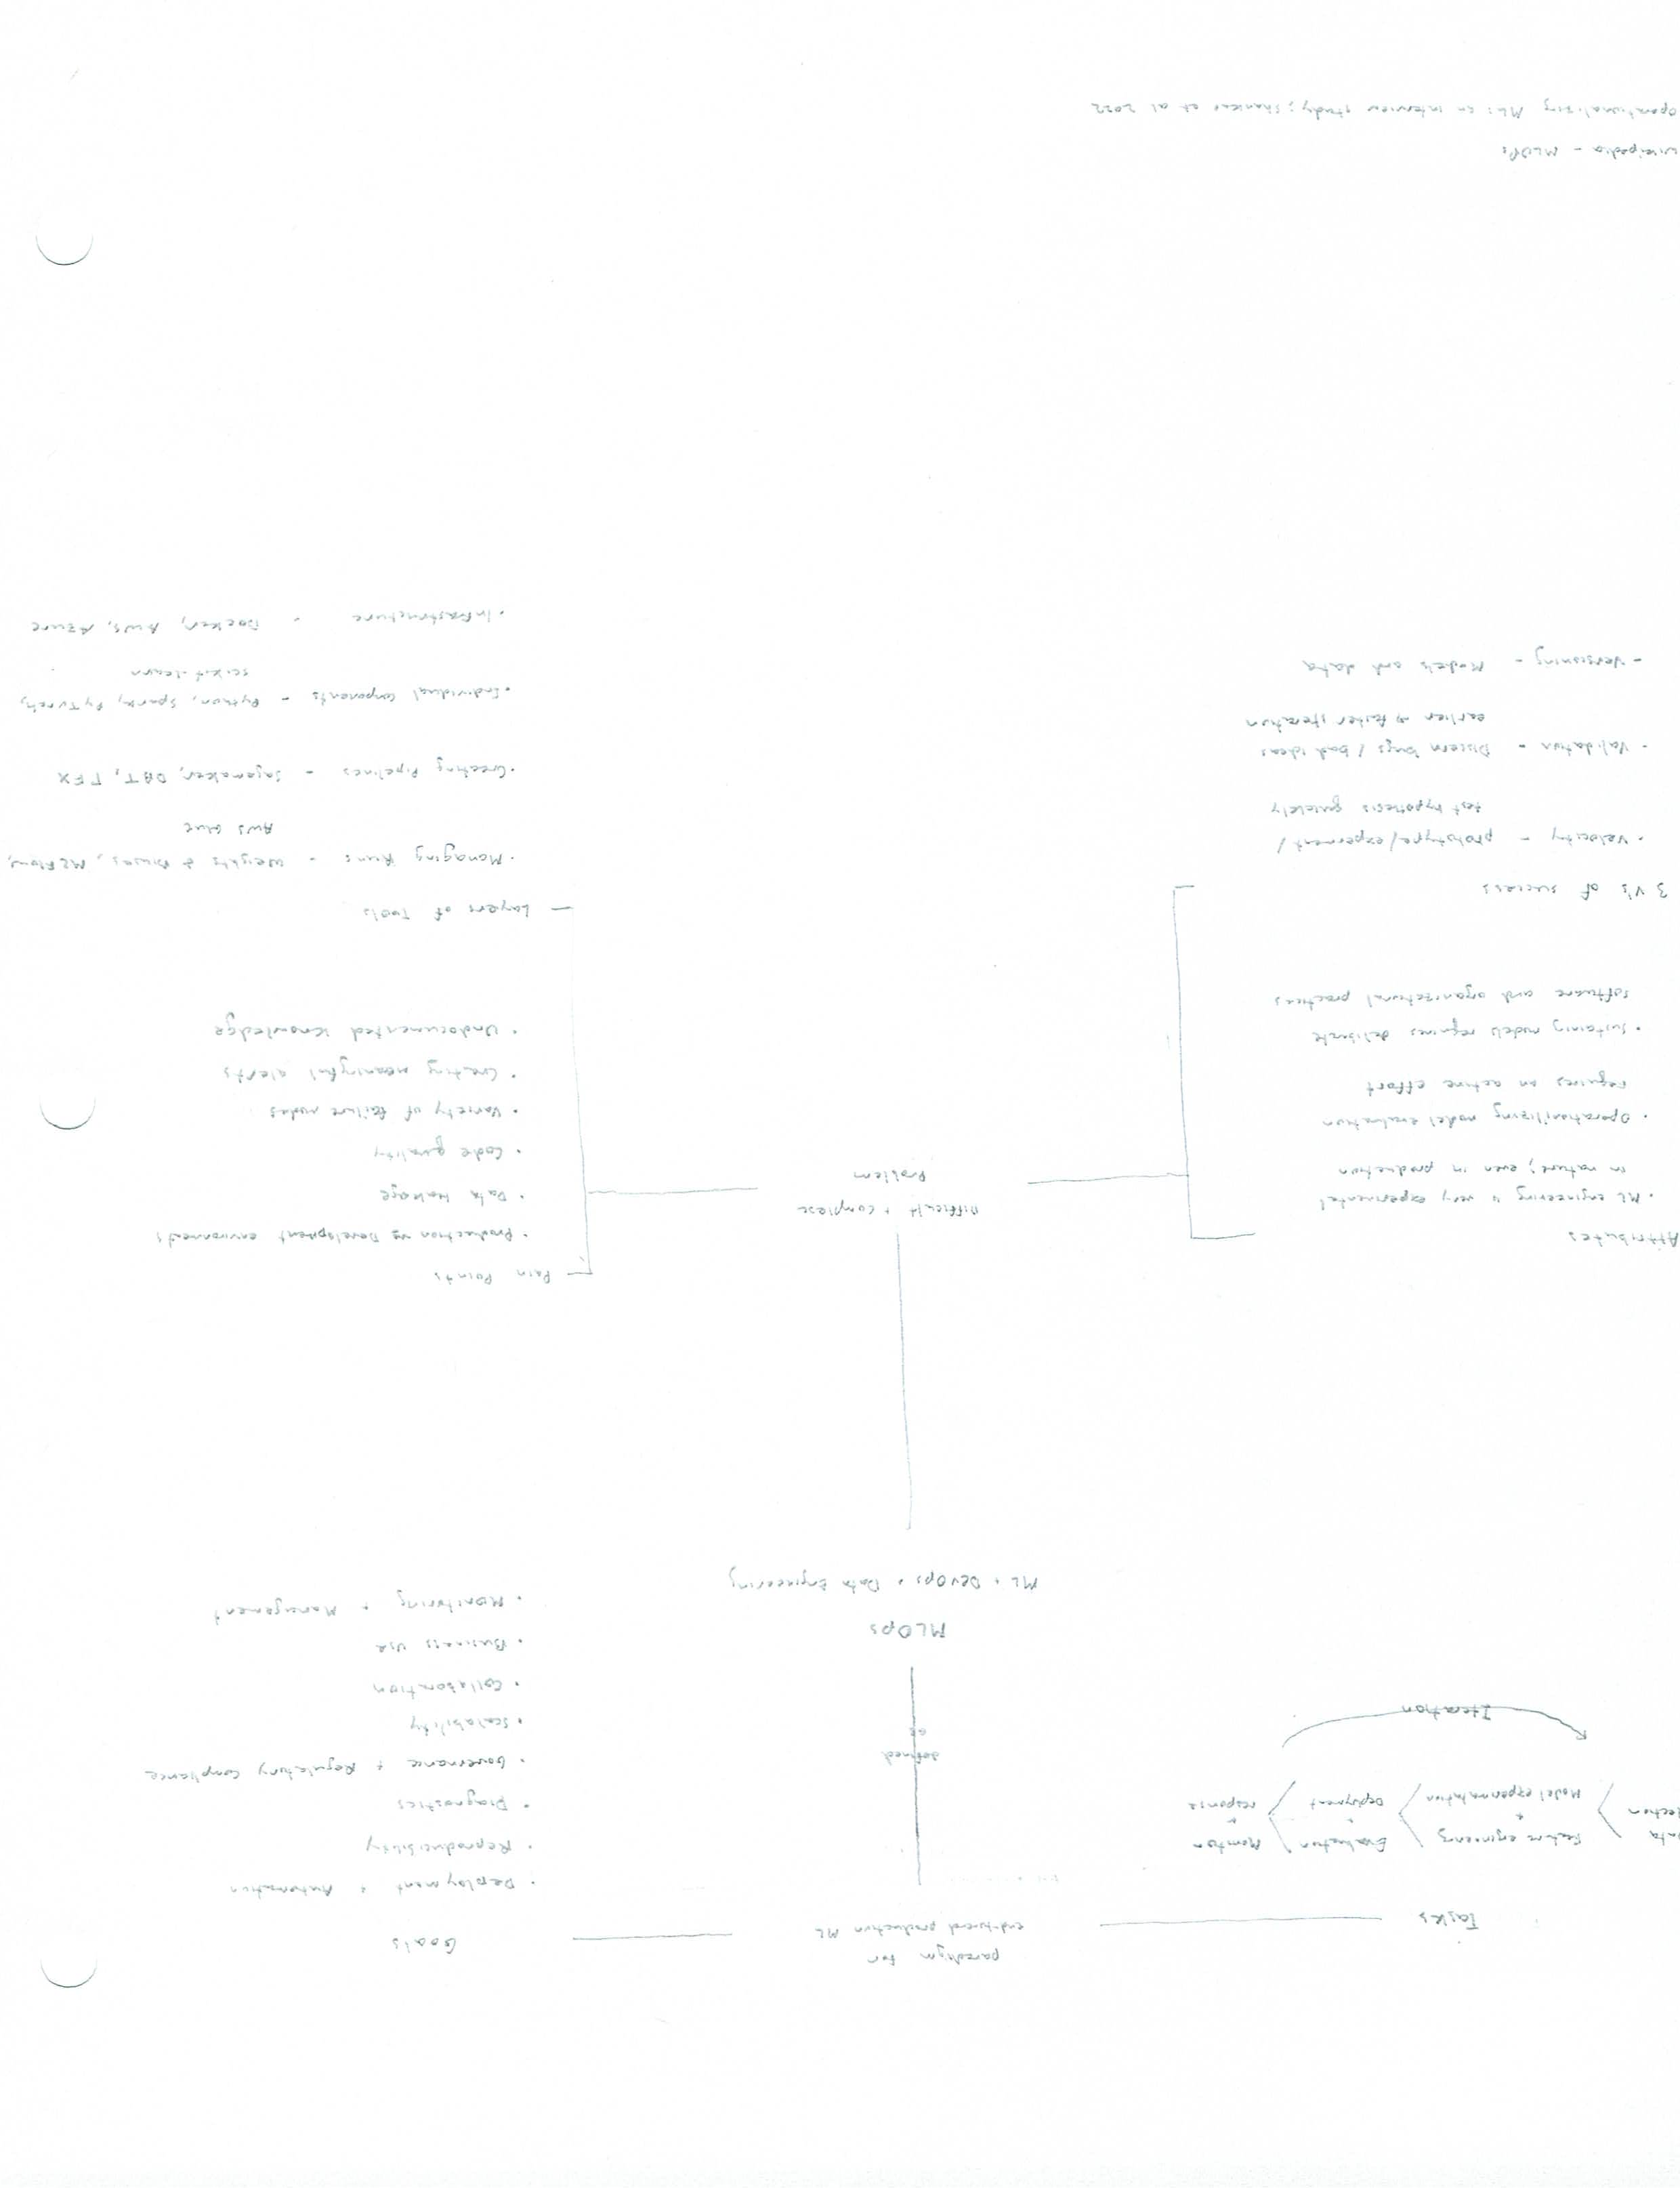 paradigm for
end-to-end production ML
Tasks
Goals
ata
lection
Feature engineering
+
Model experimentation
Evaluation
+
Deployment
Monitor
+
response
Iteration
defined
as
• Deployment + Automation
• Reproducibility
• Diagnostics
• Governance + Regulatory Compliance
• Scalability
• Collaboration
• Business Use
• Monitoring + Management
MLOps
ML + DevOps + Data Engineering
Difficult + Complex
Problem
Attributes
• ML engineering is very experimental
in nature; even in production
• Operationilizing model evaluation
requires an active effort
• Sustaining models requires deliberate
software and organizational practices
3 V's of success
• Velocity - prototype/experiment/
test hypothesis quickly
- Validation - Discern bugs / bad ideas
earlier → faster iteration
- Versioning - Models and data
Pain Points
• Production vs Development environments
• Data leakage
• Code quality
• Variety of failure modes
• Creating meaningful alerts
• Undocumented Knowledge
Layers of Tools
• Managing Runs - Weights & Biases, MLFlow,
AWS Glue
• Creating Pipelines - Sagemaker, DBT, TFX
• Individual Components - Python, Spark, PyTorch,
scikit-learn
• Infrastructure - Docker, AWS, Azure
wikipedia - MLOPs
Operationalizing ML: an interview study; Shankar et al 2022